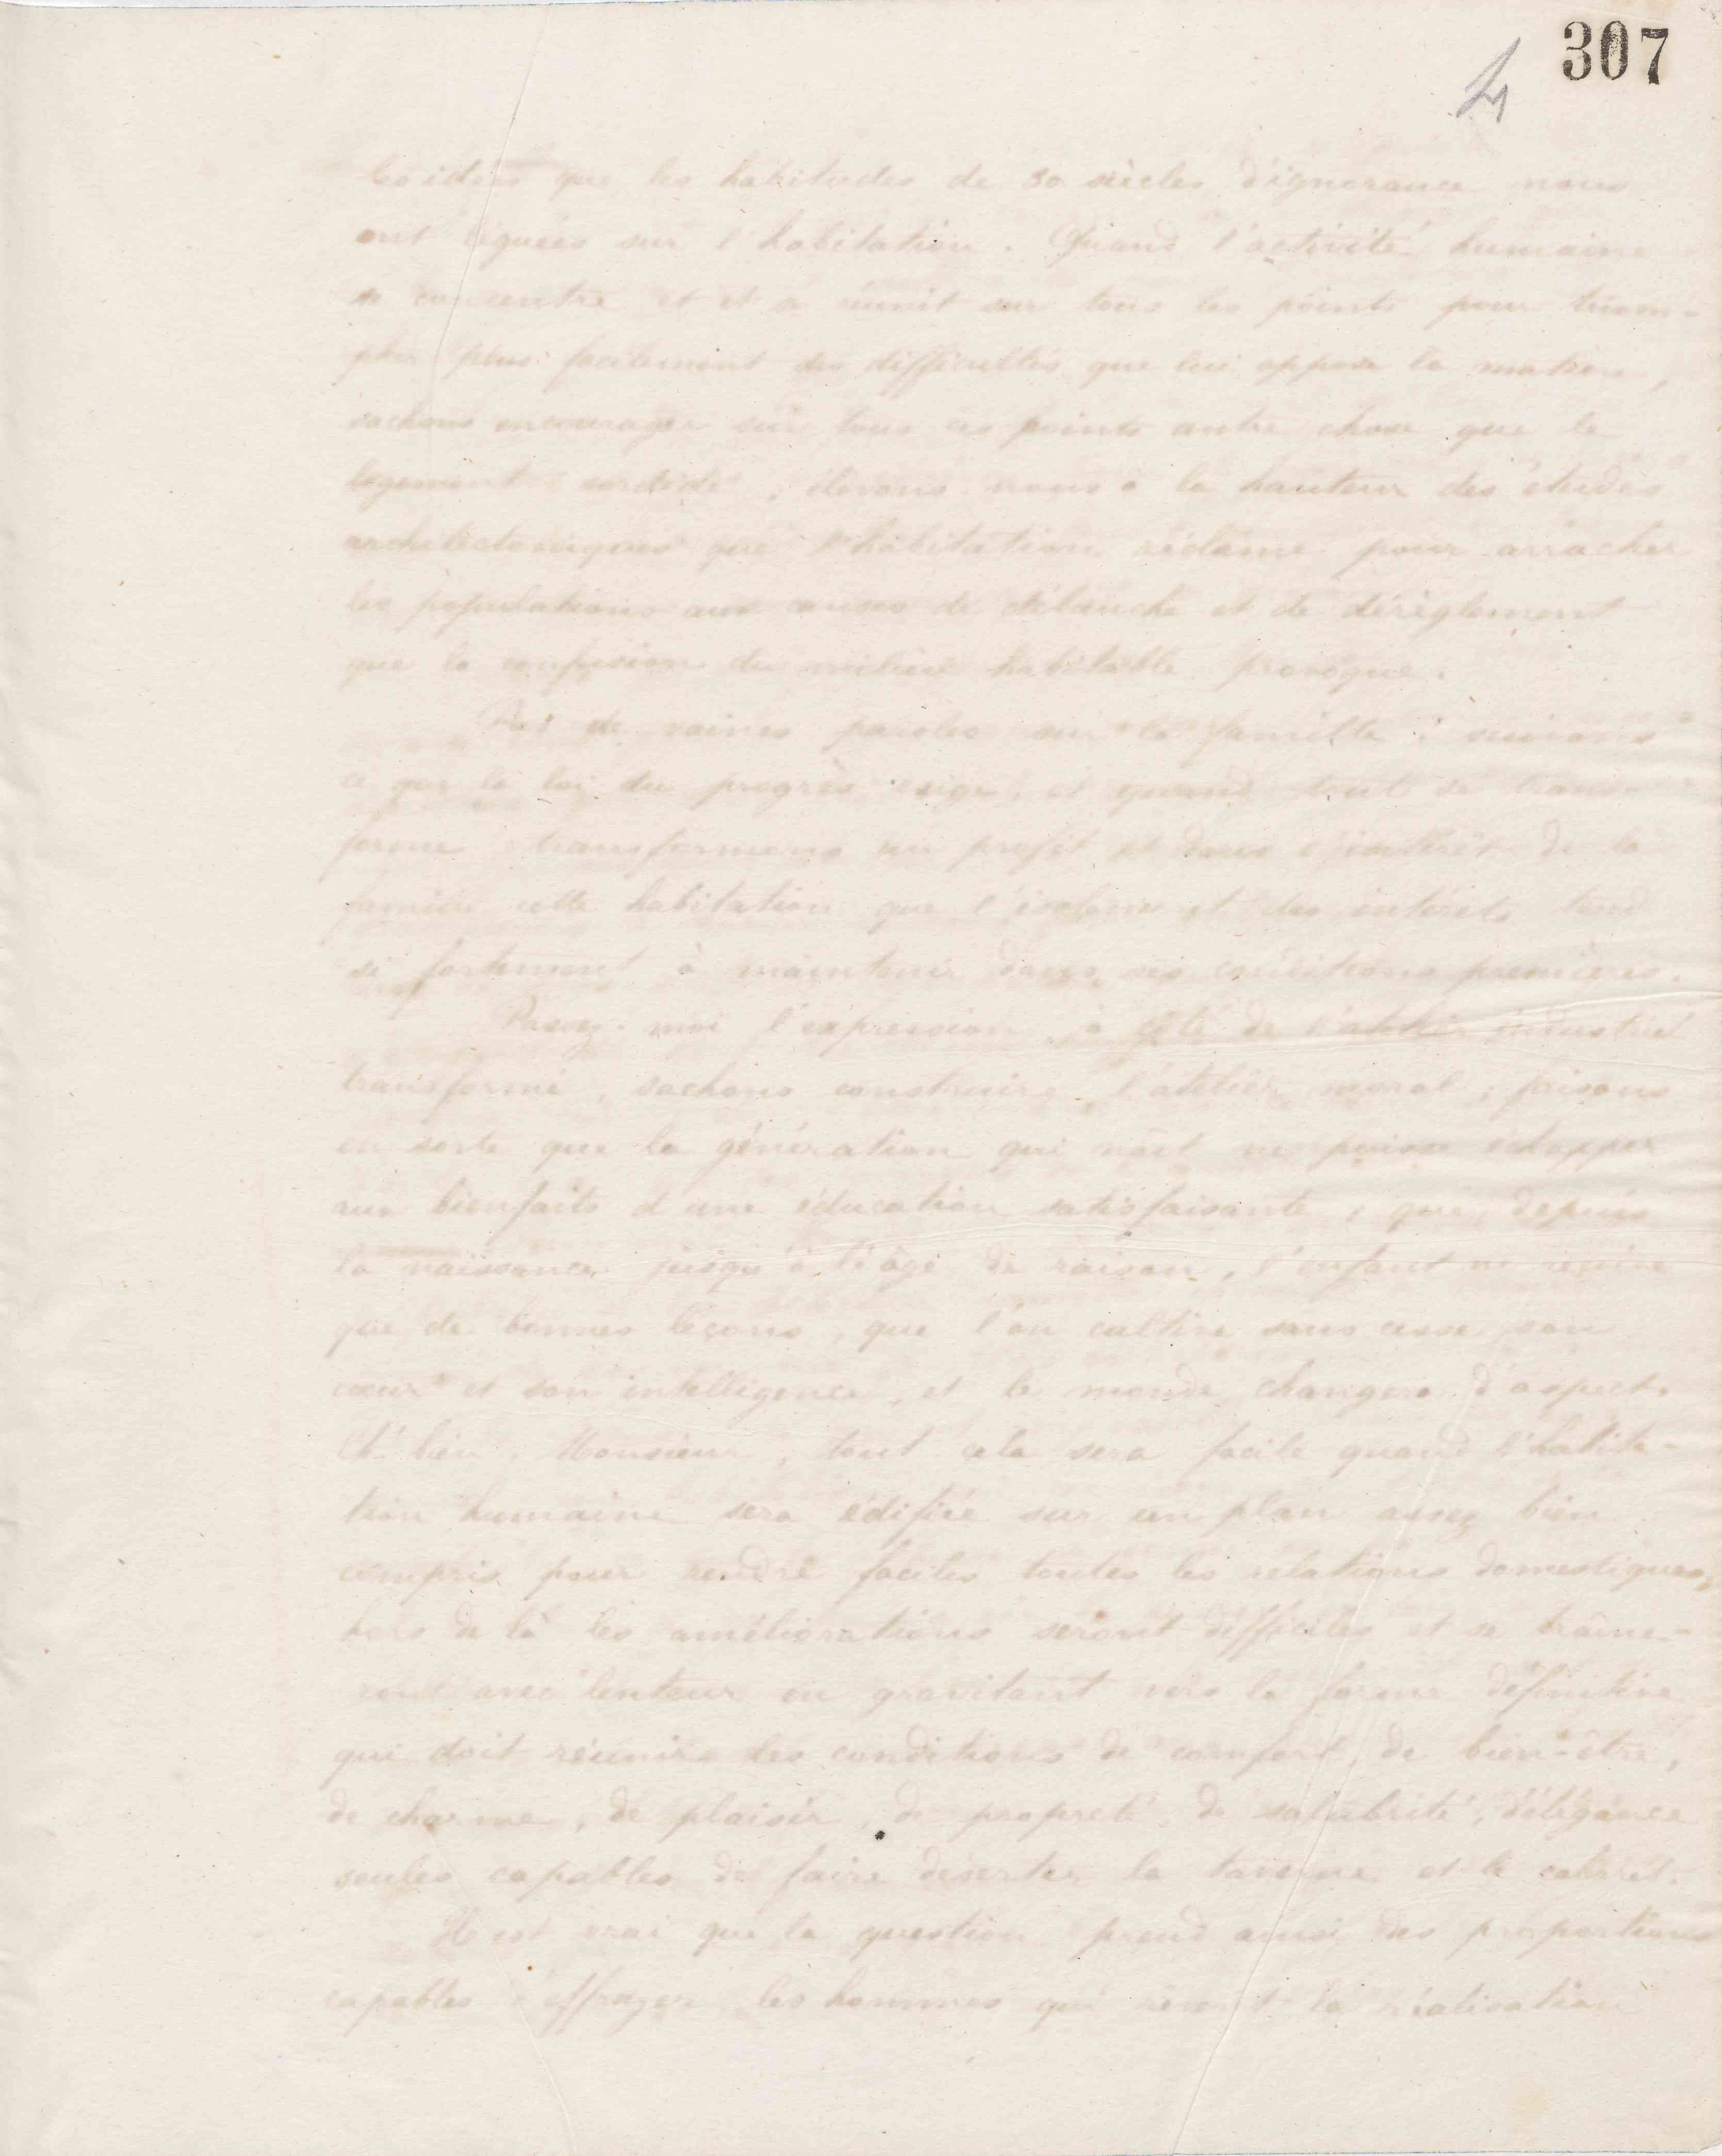 307
4
les idées que les habitudes de 30 siècles d'ignorance nous
ont léguées sur l'habitation. Quand l'activité humaine
se concentre et et se réunit sur tous les points pour triom-
pher plus facilement des difficultés que lui oppose la matière,
sachons encourager sur tous ces points autre chose que le
logement sordide, élevons nous à la hauteur des études
architectoniques que l'habitation réclame pour arracher
les populations aux causes de débauche et de dérèglement
que la confusion du milieu habitable provoque.
Pas de vaines paroles sur la famille : suivons
ce que la loi du progrès exige, et quand tout se trans-
forme, transformons au profit et dans l'intérêt de la
famille cette habitation que l'égoïsme et des intérêts tend
si fortement à maintenir dans ses conditions premières.
Passez-moi l'expression, à côté de l'atelier industriel
transformé, sachons construire l'atelier moral ; faisons
en sorte que la génération qui naît ne puisse échapper
aux bienfaits d'une éducation satisfaisante, que, depuis
la naissance jusqu'à l'âge de raison, l'enfant ne reçoive
que de bonnes leçons, que l'on cultive sans cesse son
cœur et son intelligence, et le monde changera d'aspect.
Eh bien, Monsieur, tout cela sera facile quand l'habita-
tion humaine sera édifiée sur un plan assez bien
compris pour rendre faciles toutes les relations domestiques,
hors de là les améliorations seront difficiles et se traîne-
ront avec lenteur en gravitant vers la forme définitive
qui doit réunir les conditions de confort, de bien-être,
de charme, de plaisir, de propreté, de salubrité, d'élégance
seules capables de faire déserter la taverne et le cabaret.
Il est vrai que la question prend ainsi des proportions
capables d'effrayer les hommes qui rêvent la réalisation